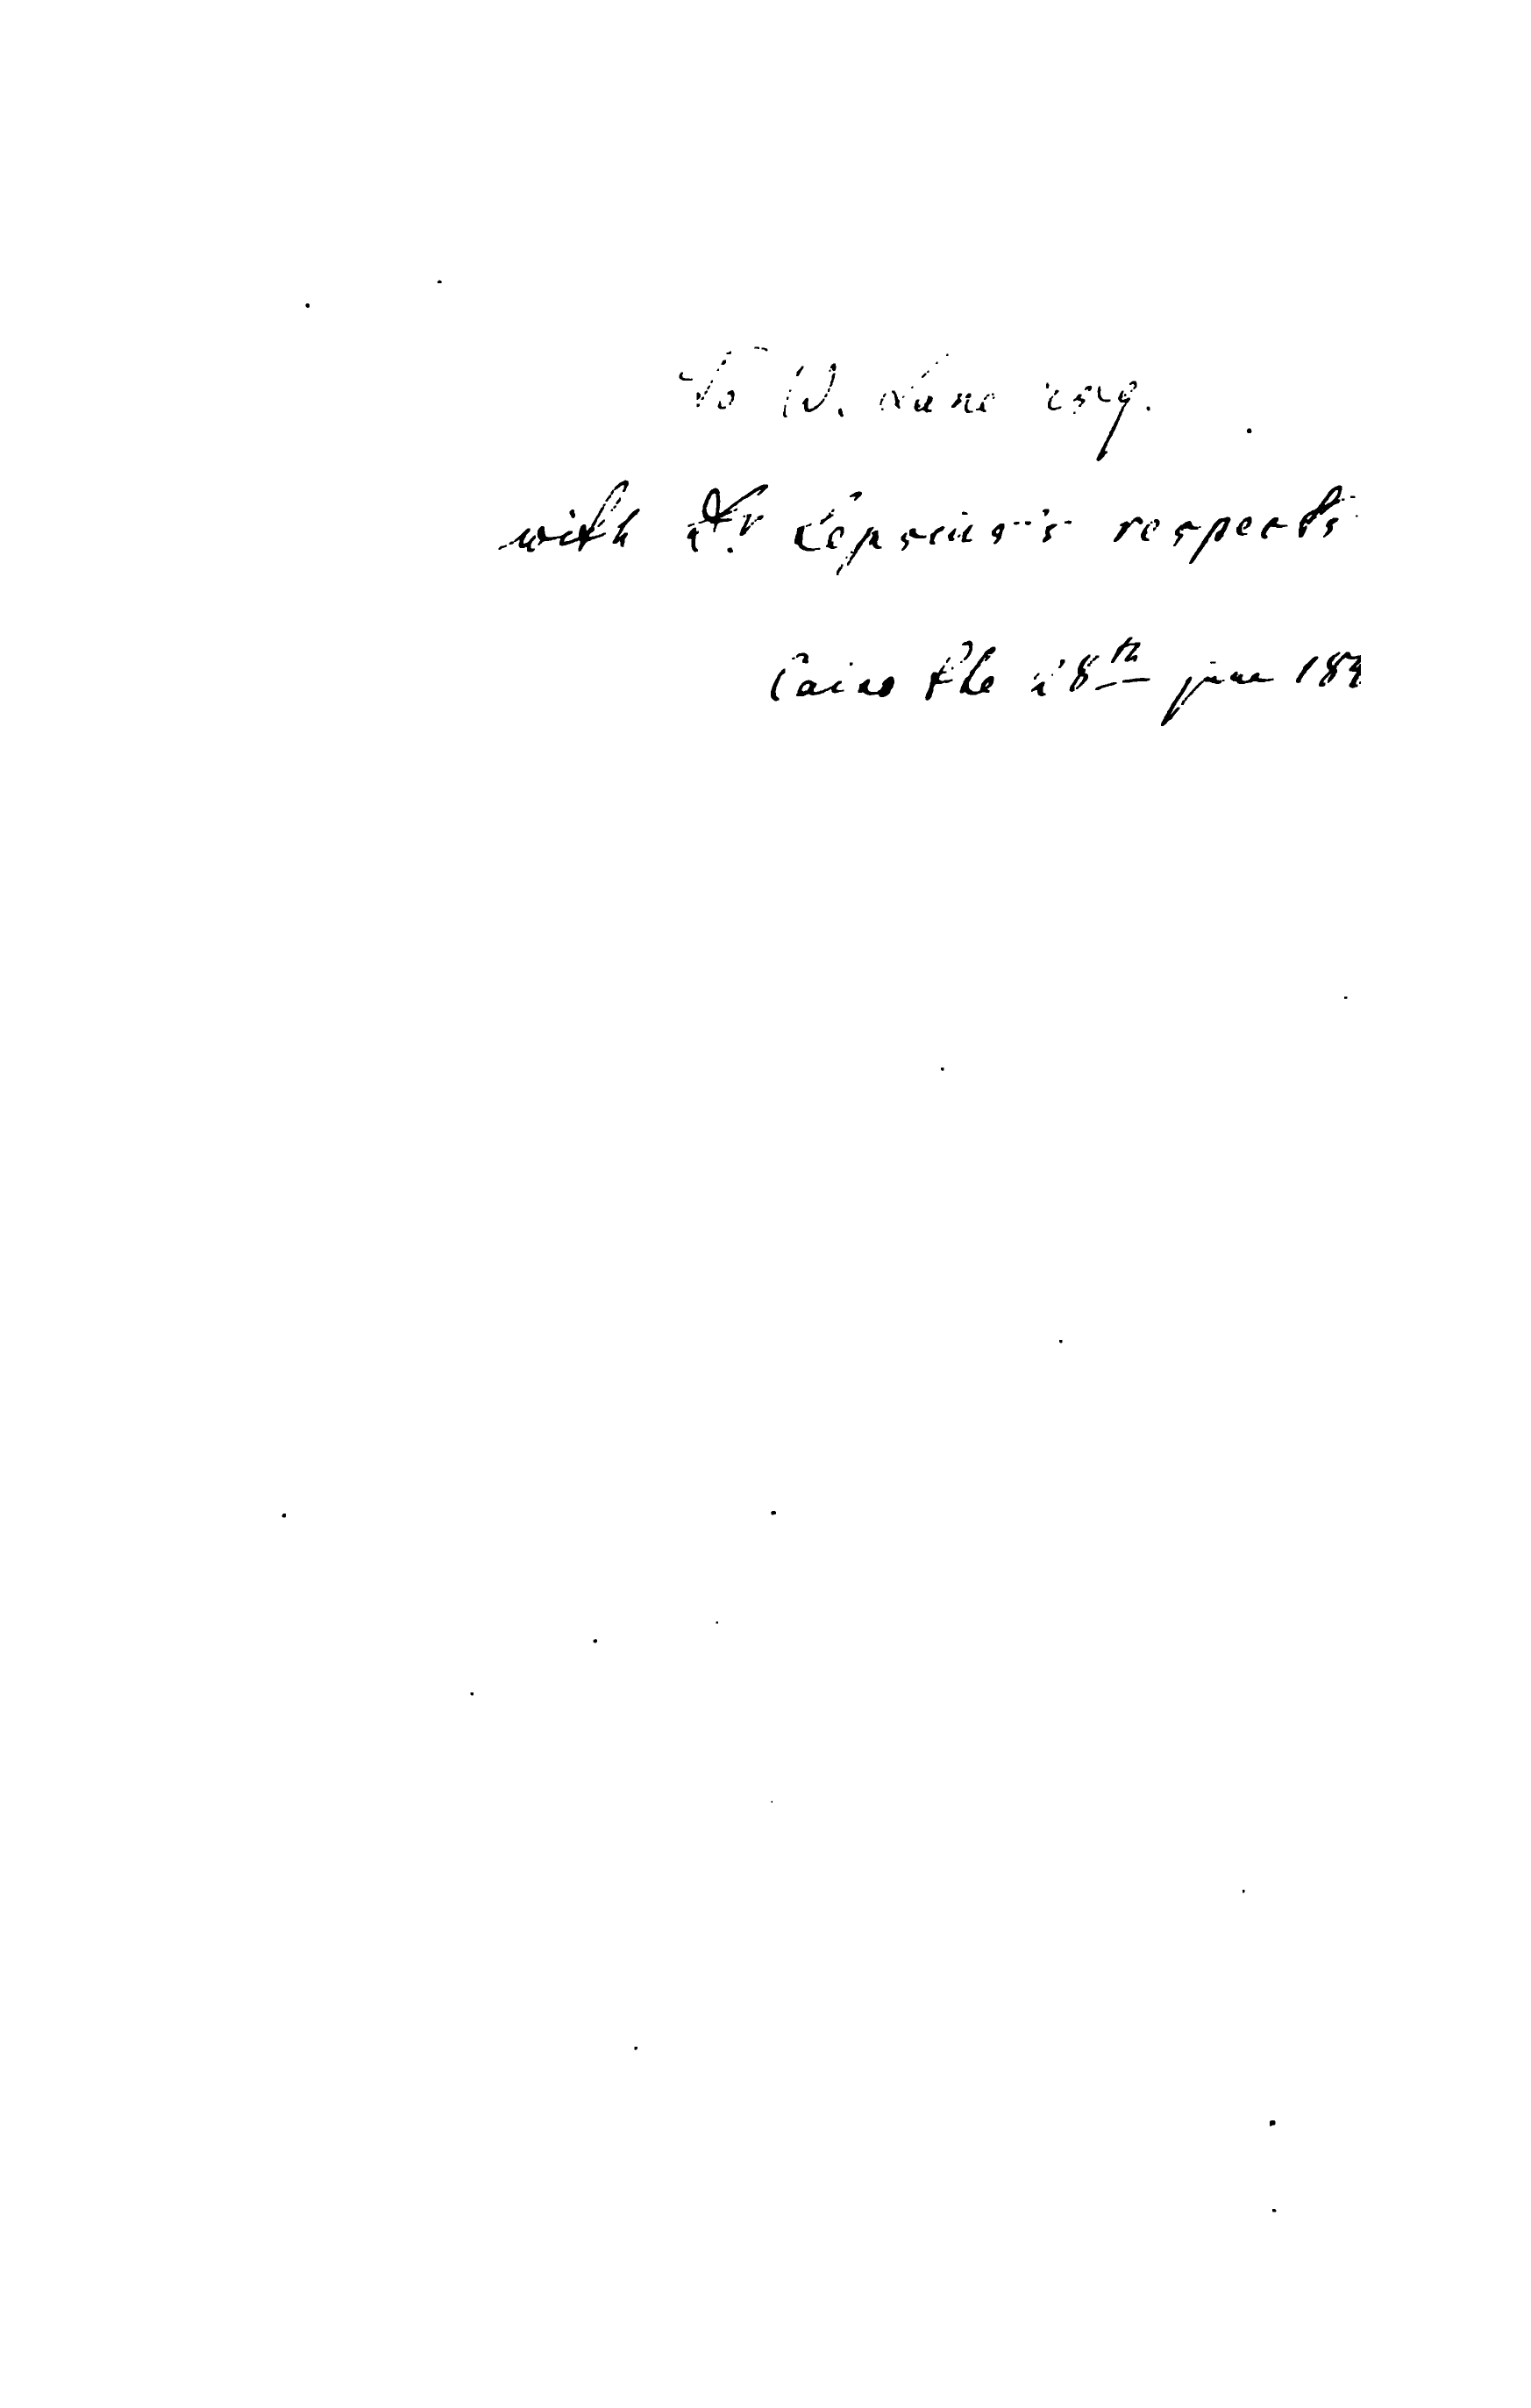 To W. Lane esq.
with Dr Lepsius's respects
Cairo the 28th june 184